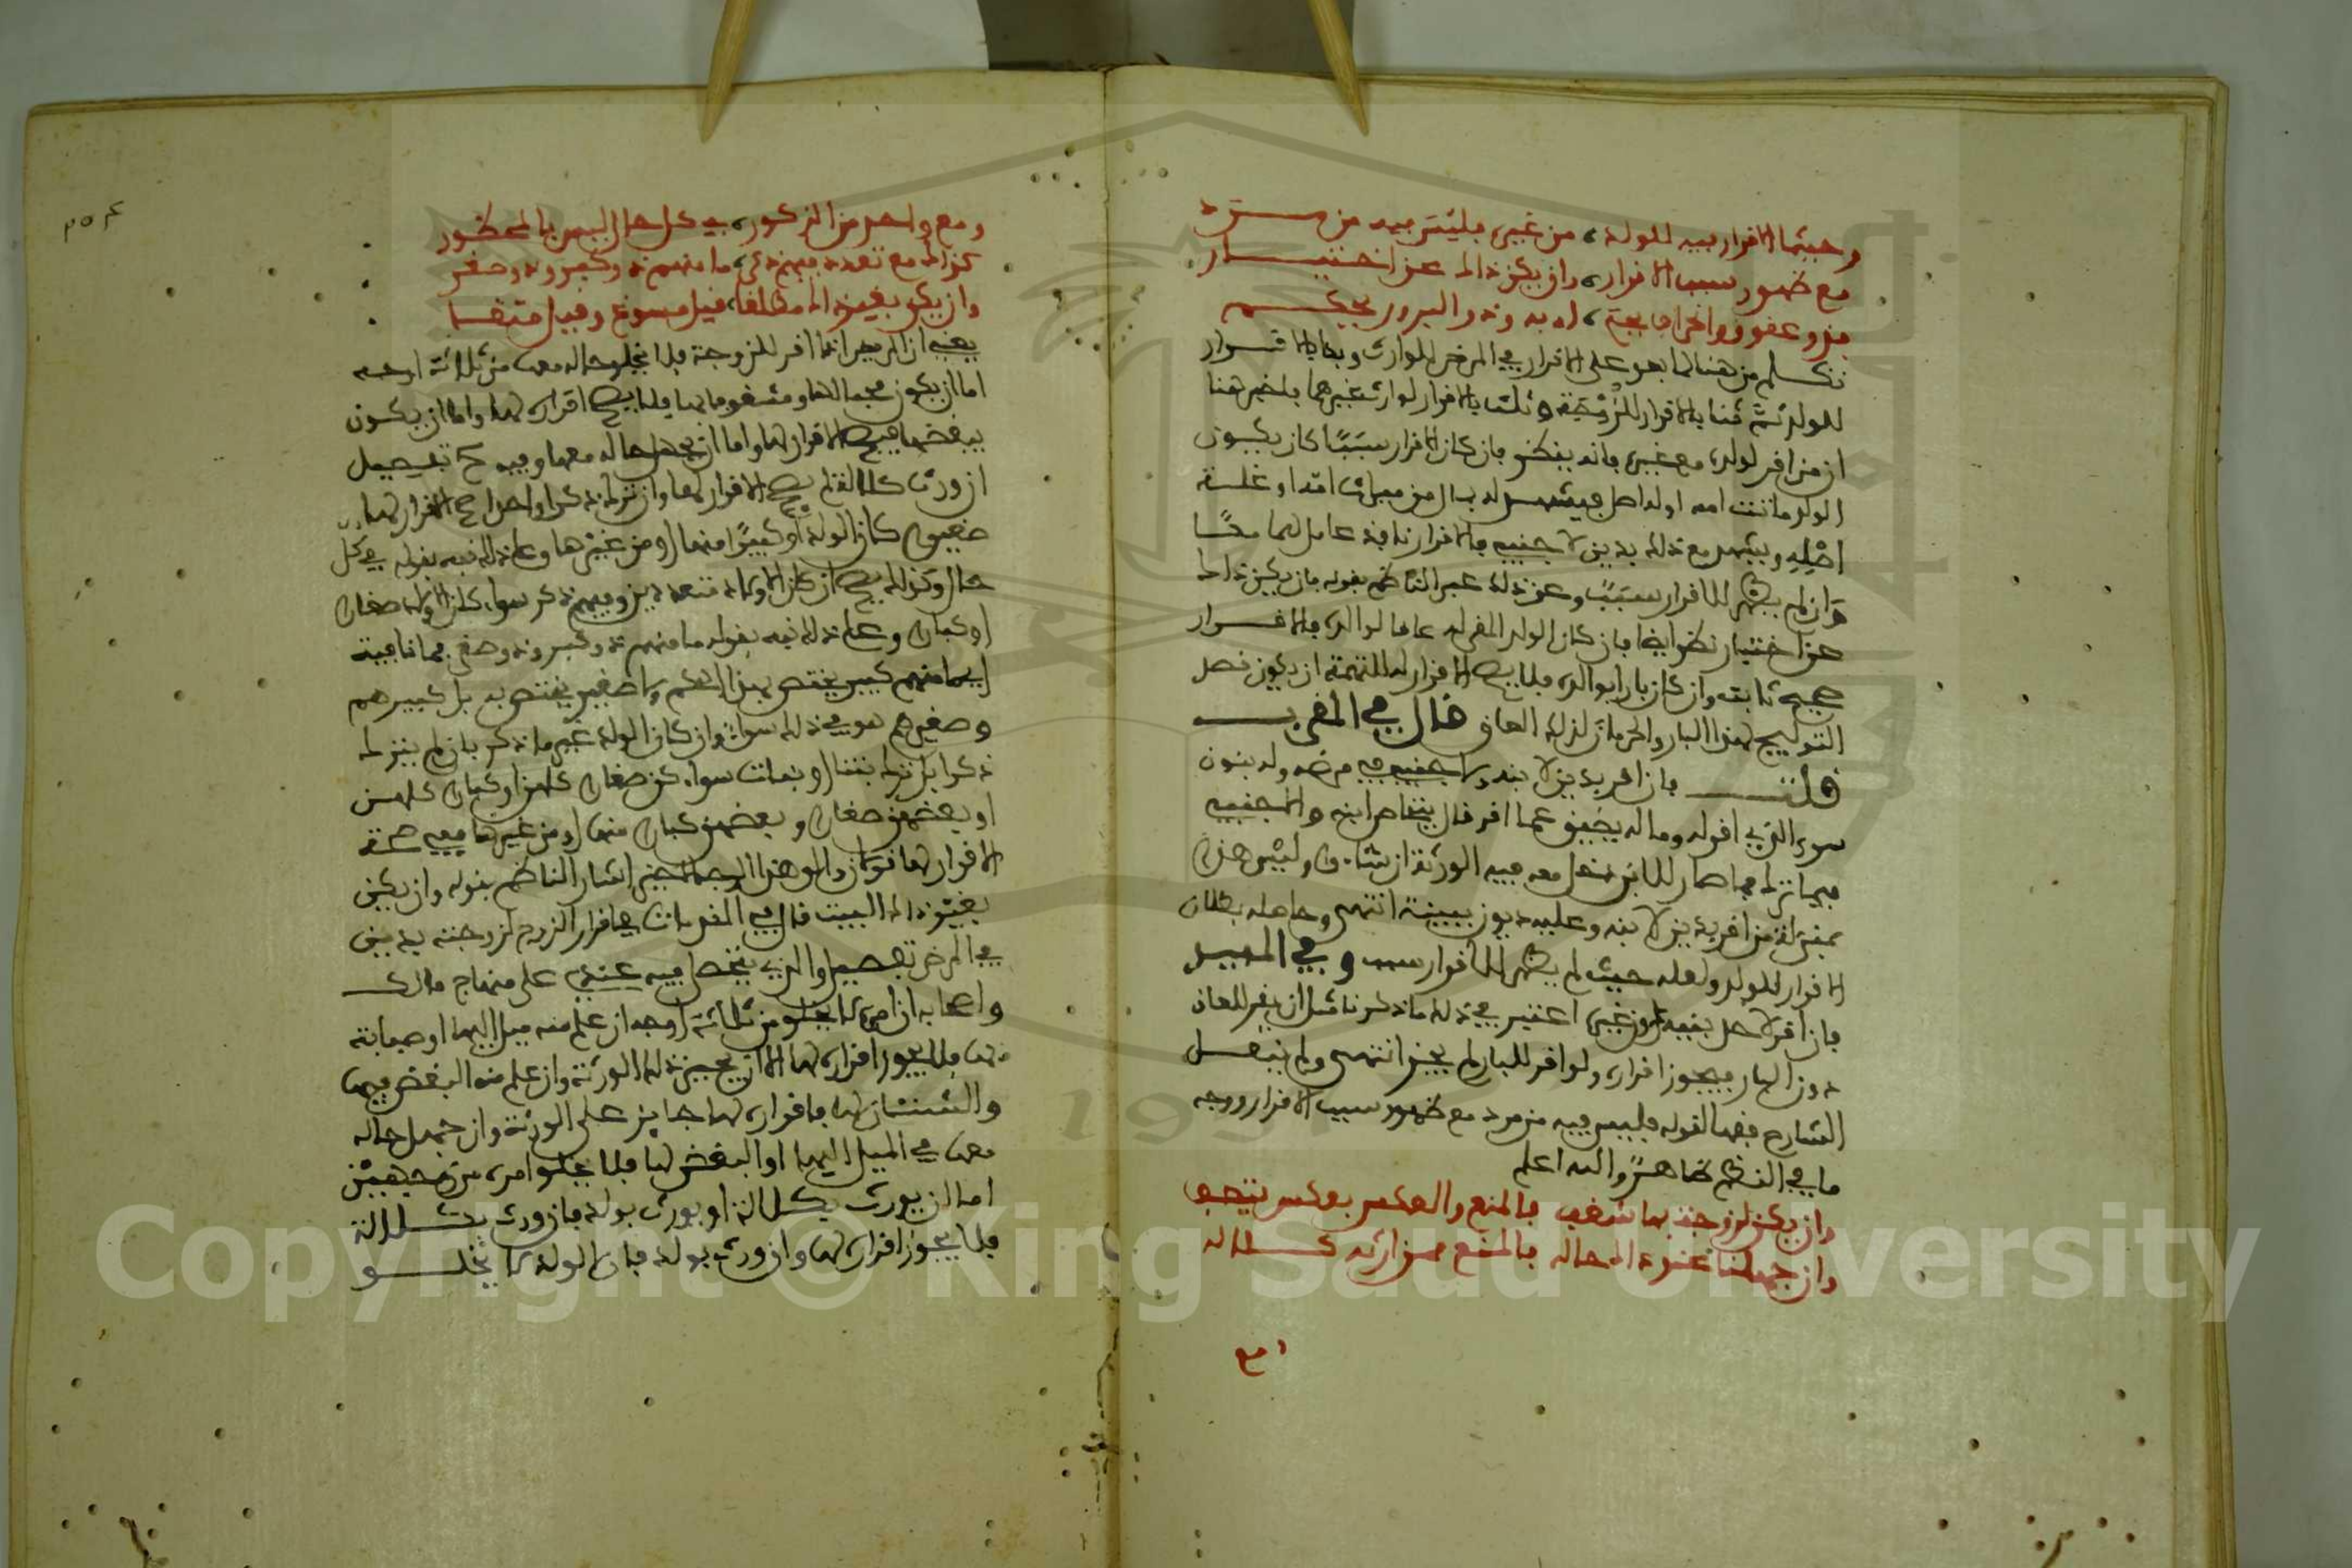 وحيثما الاقرار فيه للولد، من غيره فليس فيه من مرد
مع ظهور سبب الاقرار، وان يكن ذاك عن اختيار
فذو عقوق وانحراف يحكم، له به وذو البرور يحرم
تكلم من هنا لما بعد على الاقرار في المرض للوارث وبدا بالاقرار
للولد ثم ثنا بالاقرار للزوجة وثلث بالاقرار لوارث غيرهما فاخبر هنا
ان من اقر لولده مع غيره فانه ينظر فان كان للاقرار سببًا كان يكون
الولد ماتت امه او له اصل فيشهد له بمال من ميراث امه او غلة
اصله ويشهد مع ذلك بدين لاجنبي فالاقرار نافذ عامل لهما معًا
وان لم يظهر للاقرار سببًا وعن ذلك عبر الناظم بقوله وان يكن ذاك
عن اختيار نظر ايضا فان كان الولد المقر له عاقا لوالده فالاقرار
صحيح ثابت وان كان بارا بوالده فلا يصح الاقرار له للتهمة ان يكون قصد
التوليج لهذا البار والحرمان لذلك العاق قال في المقرب
قلت فان اقر بدين لابنه ولاجنبي في مرضه وله بنون
سوى الذي اقر له وماله يضيق عما اقر قال يتحاص ابنه والاجنبي
فيما ترك فما صار للابن دخل معه فيه الورثة ان شاءوا وليس هذا
بمنزلة من اقر بدين لابنه وعليه ديون ببينة انتهى وحاصله بطلان
الاقرار للولد ولعله حيث لم يظهر للاقرار سبب وفي المفيد
فان اقر لاحد بنيه دون غيره اعتبر في ذلك ما ذكرنا مثل ان يقر للعاق
دون البار فيجوز اقراره ولو اقر للبار لم يجز انتهى ولم ينقل
الشارح فقها لقوله فليس فيه من مرد مع ظهور سبب الاقرار ووجه
ما في النظم ظاهرًا والله اعلم
وان يكن لزوجة بها شغف فالمنع والعكس بعكس يتصف
وان جهلنا عند ذاك حاله فالمنع ممن ارثه كلاله
ومع
ومع واحد من الذكور، في كل حال ليس بالمحظور
كذاك مع تعدد فيهم ذكر، ما منهم ذو كبر وذو صغر
وان يكن بغير ذاك مطلقا، قيل مسوغ وقيل متقى
يعني ان المريض اذا اقر للزوجة فلا يخلو حاله معها من ثلاثة اوجه
اما ان يكون محبا لها ومشغوفا بها فلا يصح اقراره لها واما ان يكون
يبغضها فيصح الاقرار لها واما ان يجهل حاله معها وفيه ح تفصيل
ان ورث كلالة لم يصح الاقرار لها وان ترك ذكرا واحدا صح الاقرار لها
صغيرا كان الولد او كبيرًا منها او من غيرها وعلى ذلك نبه بقوله في كل
حال وكذلك يصح ان كان الاولاد متعددين وفيهم ذكر سواء كان الاولاد صغارا
او كبارا وعلى ذلك نبه بقوله ما منهم ذو كبر وذو صغر فما نافية
اي ما منهم كبير يختص بهذا الحكم ولا صغير يختص به بل كبيرهم
وصغيرهم هو في ذلك سواء وان كان الولد غير ما ذكر بان لم يترك
ذكرا بل ترك بنتا او بنات سواء كن صغارا كلهن او كبارا كلهن
او بعضهن صغارا وبعضهن كبارا منها او من غيرها ففي صحة
الاقرار لها قولان والى هذا الوجه الاخير اشار الناظم بقوله وان يكن
بغير ذاك البيت قال في المقدمات في اقرار الزوج لزوجته بدين
في المرض تفصيل والذي يتحصل فيه عندي على منهاج مالك
واصحابه ان امره لا يخلو من ثلاثة اوجه ان علم منه ميل اليها او صبابة
بها فلا يجوز اقراره لها الا ان يجيز ذلك الورثة وان علم منه البغض فيها
والشنئان لها فاقراره لها جايز على الورثة وان جهل حاله
معها في الميل اليها او البغض لها فلا يخلو امره من وجهين
اما ان يورث بكلالة او يورث بولد فان ورث بكلالة
فلا يجوز اقراره لها وان ورث بولد فان الولد لا يخلو